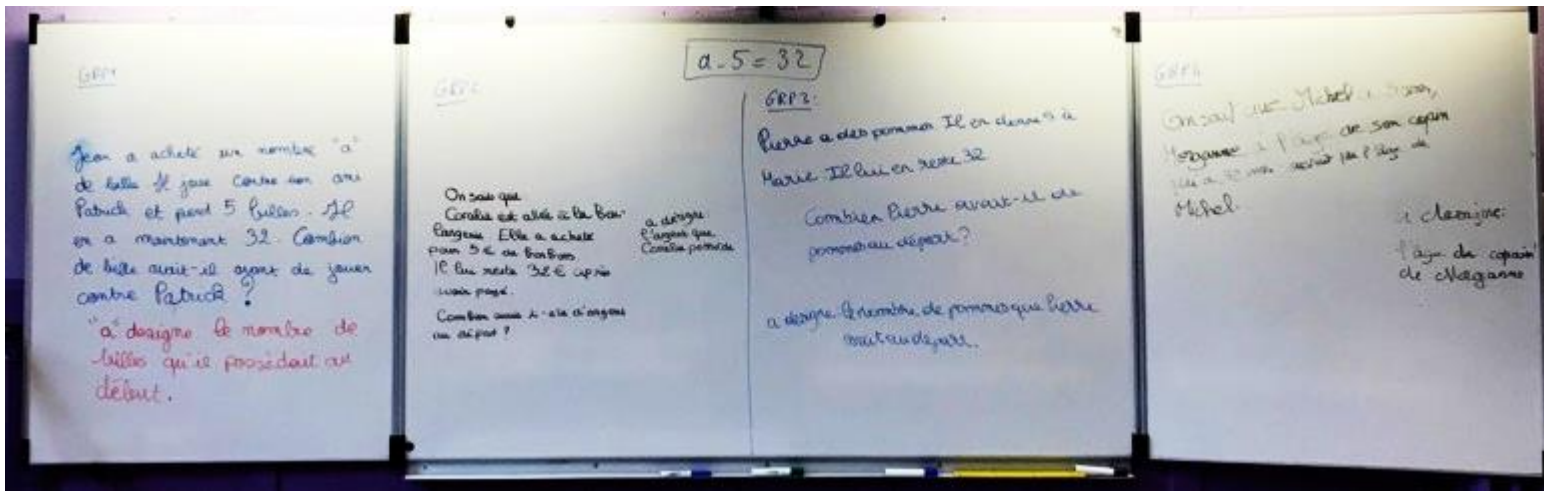 a - 5 = 32
GRP1
Jean a acheté un nombre "a"
de bille Il joue contre son ami
Patrick et perd 5 billes. Il
en a maintenant 32. Combien
de bille avait-il avant de jouer
contre Patrick ?
"a" designe le nombre de
billes qu'il possédait au
début.
On sais que
Coralie est allée à la bou-
langerie. Elle a acheté
pour 5 € de bonbons
Il lui reste 32 € après
avoir payé.
Combien avait-elle d'argent
au départ ?
a désigne
l'argent que
Coralie possède
GRP2:
Pierre a des pommes Il en donne 5 à
Marie. Il lui en reste 32
Combien Pierre avait-il de
pommes au départ ?
a désigne le nombre de pommes que Pierre
avait au départ.
On sait que Michel a
Morganne a l'age de son copain
l'âge de
Michel.
l'age du copain
de Morganne